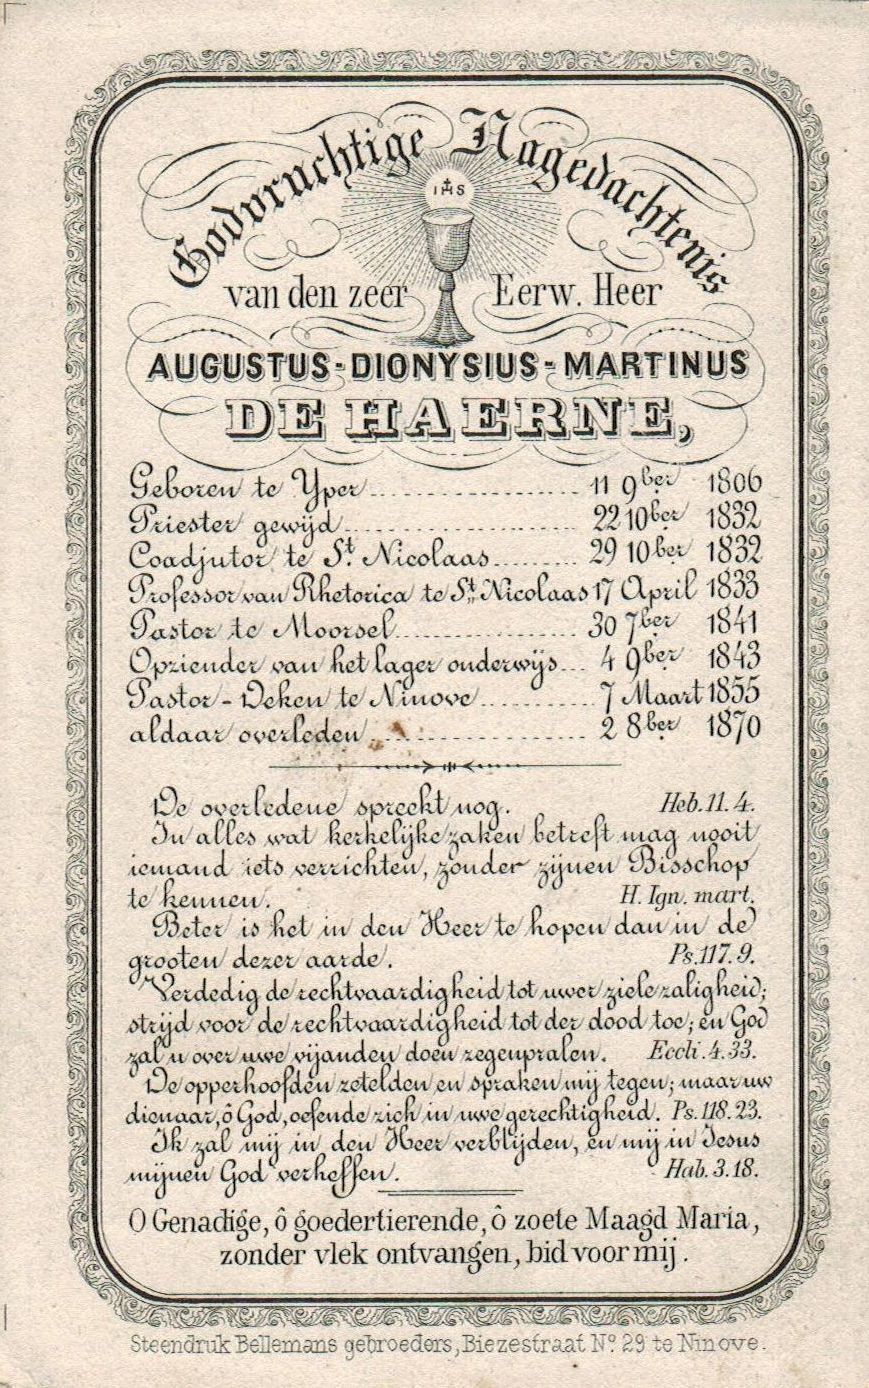 Godvruchtige Nagedachtenis
IHS
van den zeer Eerw. Heer
AUGUSTUS-DIONYSIUS-MARTINUS
DE HAERNE,
Geboren te Yper.................... 11 9ber 1806
Priester gewijd...................... 22 10ber 1832
Coadjutor te St. Nicolaas......... 29 10ber 1832
Professor van Rhetorica te St. Nicolaas 17 April 1833
Pastor te Moorsel................... 30 7ber 1841
Opziender van het lager onderwijs... 4 9ber 1843
Pastor-Deken te Ninove........... 7 Maart 1855
aldaar overleden.................... 2 8ber 1870
De overledene spreekt nog. Heb. 11. 4.
In alles wat kerkelijke zaken betreft mag nooit
iemand iets verrichten, zonder zijnen Bisschop
te kennen. H. Ign. mart.
Beter is het in den Heer te hopen dan in de
grooten dezer aarde. Ps. 117. 9.
Verdedig de rechtvaardigheid tot uwer ziele zaligheid;
strijd voor de rechtvaardigheid tot der dood toe; en God
zal u over uwe vijanden doen zegenpralen. Eccli. 4. 33.
De opperhoofden zetelden en spraken mij tegen; maar uw
dienaar, ô God, oefende zich in uwe gerechtigheid. Ps. 118. 23.
Ik zal mij in den Heer verblijden, en mij in Jesus
mijnen God verheffen. Hab. 3. 18.
O Genadige, ô goedertierende, ô zoete Maagd Maria,
zonder vlek ontvangen, bid voor mij.
Steendruk Bellemans gebroeders, Biezestraat No. 29 te Ninove.